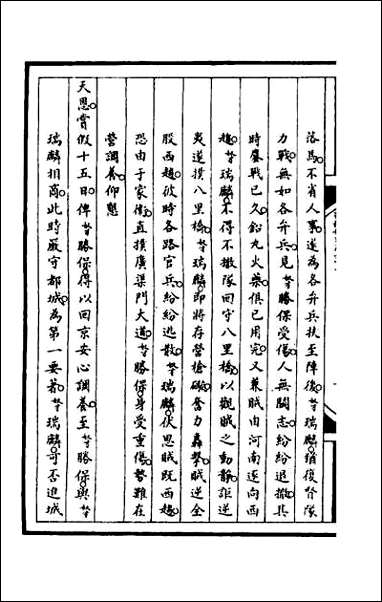 落馬。不省人事。遂為各弁兵扶至陣後。奴才瑞麟。猶復督隊
力戰。無如各弁兵。見奴才勝保受傷。人無鬥志。紛紛退撤。其
時鏖戰已久。鉛丸火藥。俱已用完。又兼賊由河南逐向西
趨。奴才瑞麟。不得不撤隊回守八里橋。以觀賊之動靜。詎逆
夷逆撲八里橋。奴才瑞麟。即將存營槍礮。奮力轟擊。賊逆全
股西趨。彼時各路官兵。紛紛逃散。奴才瑞麟。伏思賊既西趨。
恐由于家衛。直撲廣渠門大道。奴才勝保。身受重傷。勢難在
營調養。仰懇
天恩賞假十五日。俾奴才勝保。得以回京安心調養。至奴才勝保。與奴才
瑞麟相商。此時嚴守都城。為第一要著。奴才瑞麟。可否進城